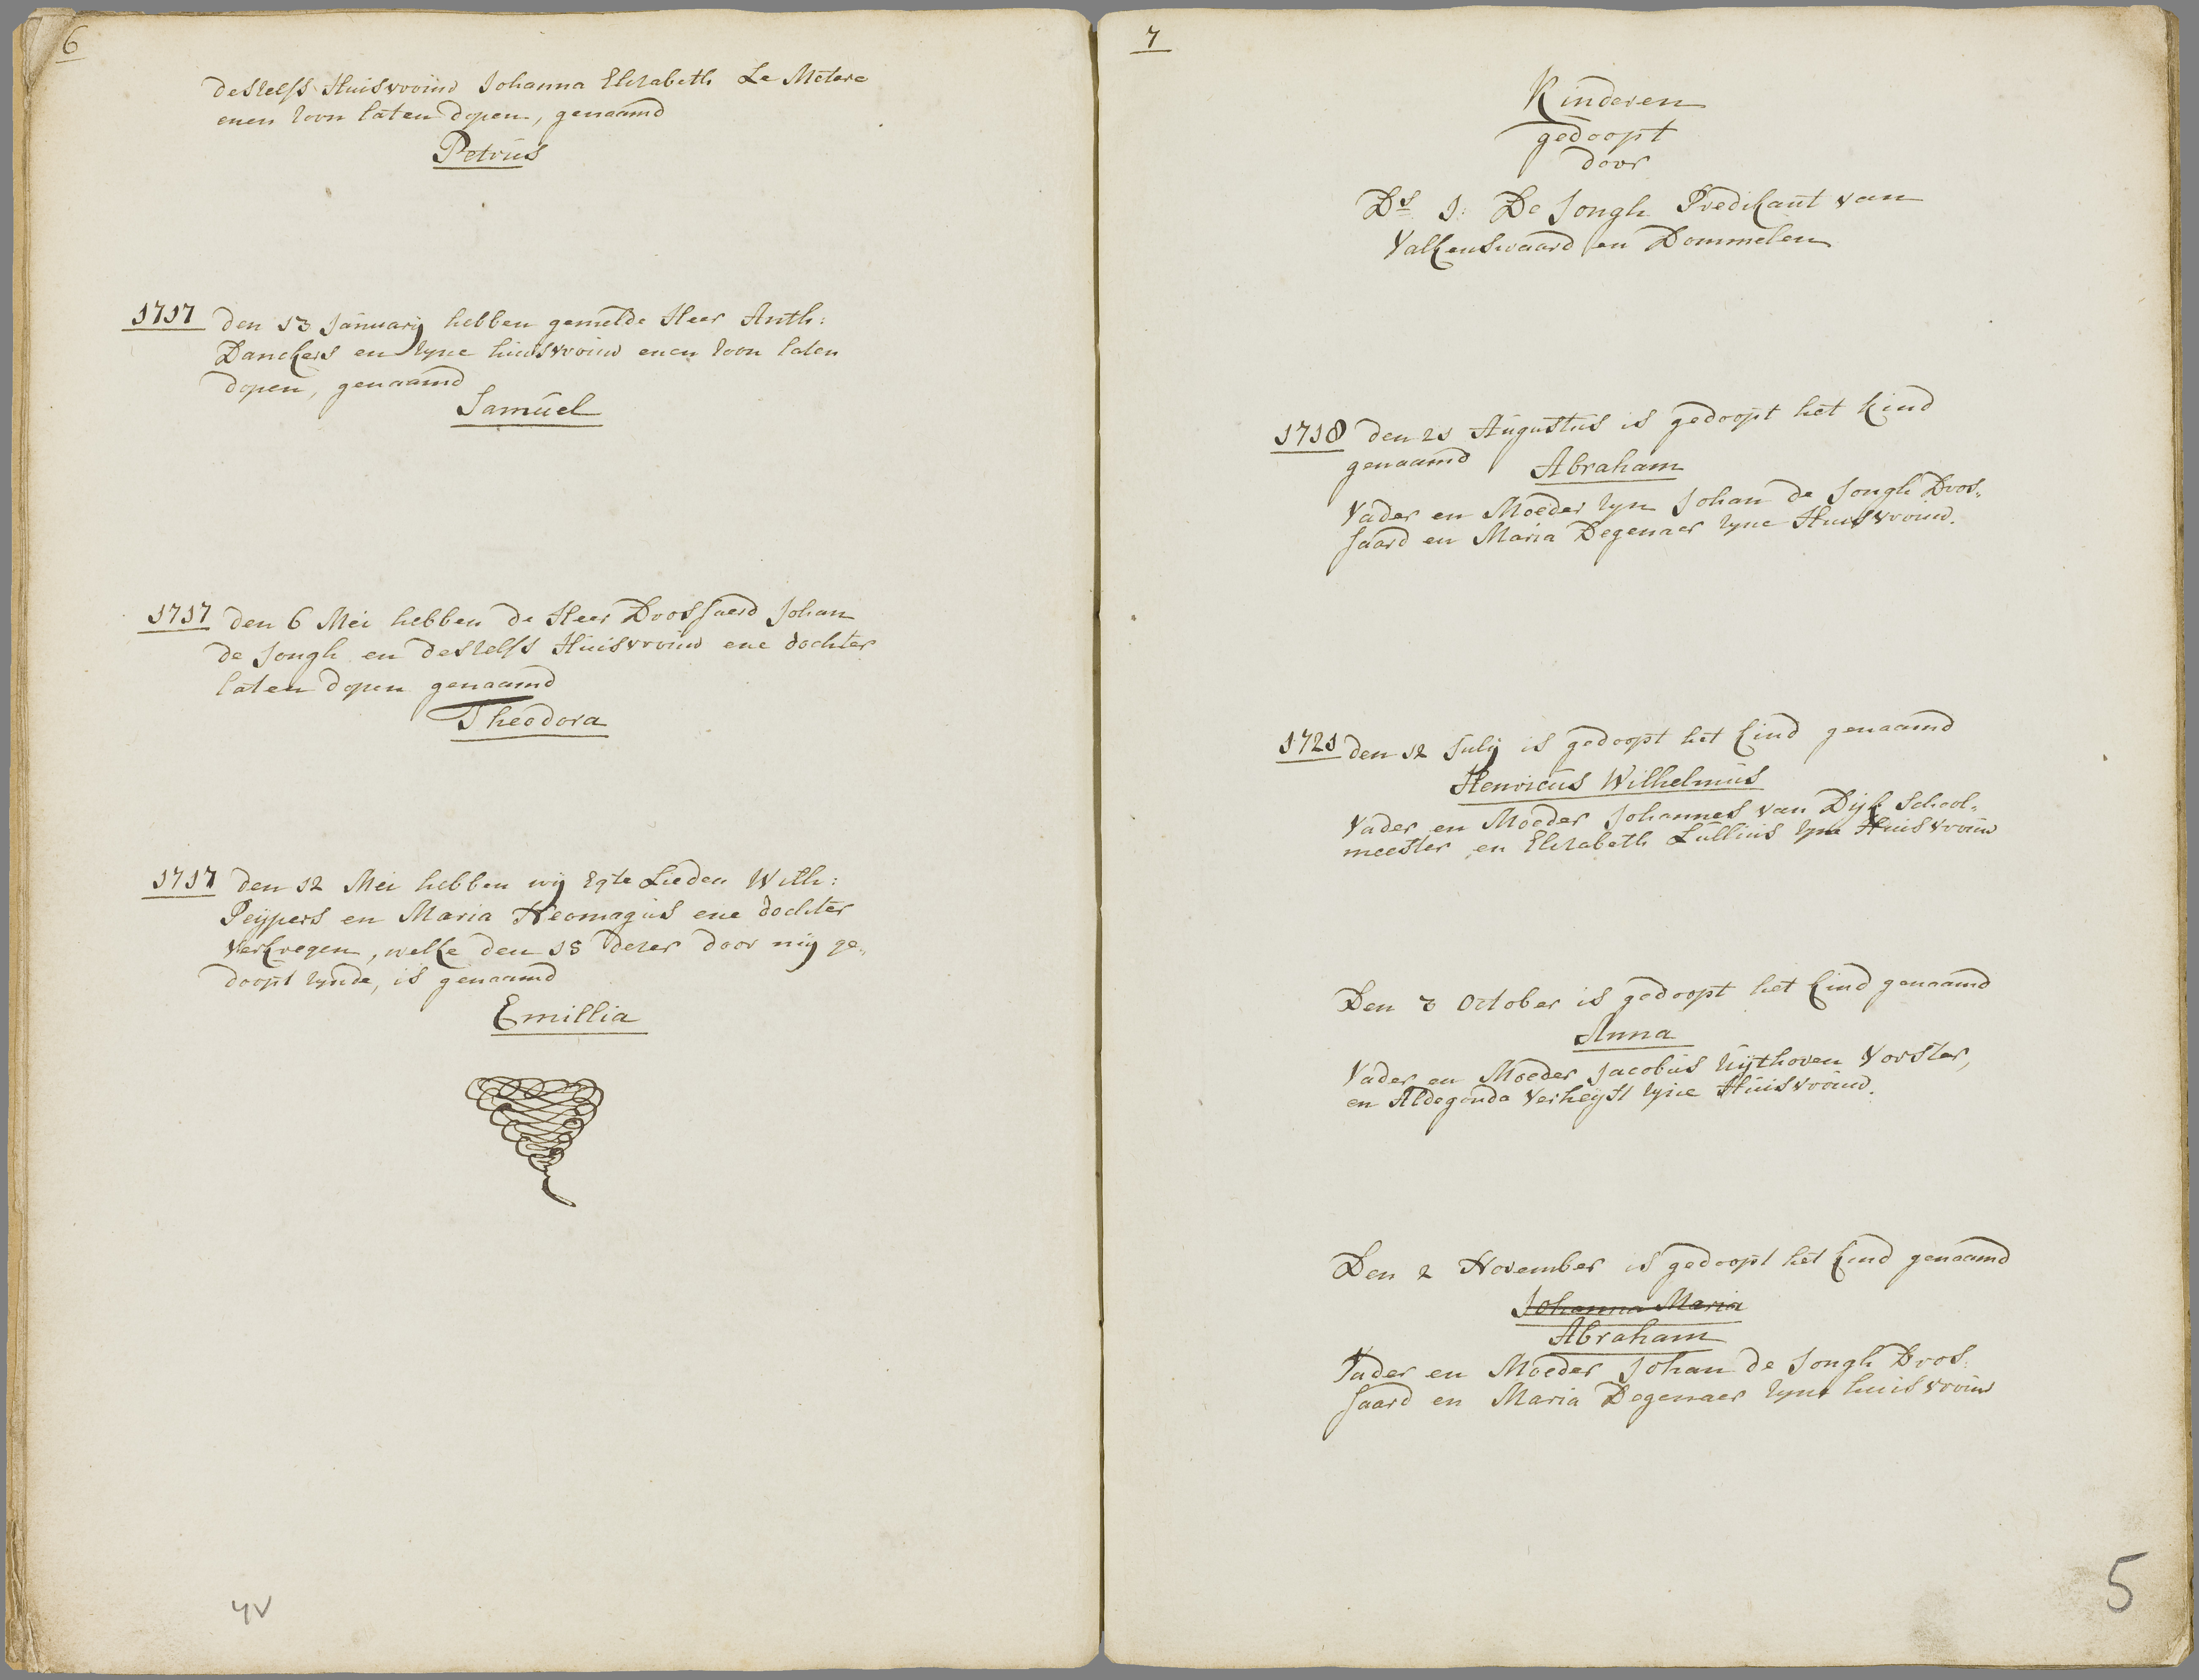 6
deszelfs Huisvrouw Johanna Elizabeth Le Metere
enen zoon laten dopen, genaamd
Petrus
1717 den 13 January hebben gemelde Heer Anth:
Danckers en zyne huisvrouw enen zoon laten
dopen, genaamd
Samuel
1717 den 6 Mei hebben de Heer Drossaerd Johan
de Jongh en deszelfs Huisvrouw ene dochter
laten dopen genaamd
Theodora
1717 den 12 Mei hebben wij Egte Lieden Wilh:
Peijpers en Maria Neomagus ene dochter
verkregen, welke den 15 dezer door mij ge„
doopt zynde, is genaamd
Emillia
4v
7
Kinderen
gedoopt
door
Ds J: De Jongh Predikant van
Valkenswaard en Dommelen
1718 den 21 Augustus is gedoopt het kind
genaamd Abraham
Vader en Moeder zyn Johan de Jongh Dros„
saard en Maria Degenaer zyne Huisvrouw.
1721 den 12 July is gedoopt het kind genaamd
Henricus Wilhelmus
Vader en Moeder Johannes van Dijk School„
meester en Elizabeth Lullius zyne Huisvrouw
Den 3 October is gedoopt het kind genaamd
Anna
Vader en Moeder Jacobus Uijthoven Vorster,
en Aldegonda Verheijst zyne Huisvrouw.
Den 2 November is gedoopt het kind genaamd
Johanna Maria
Abraham
Vader en Moeder Johan de Jongh Dros:
saard en Maria Degenaer zyne huisvrouw
5